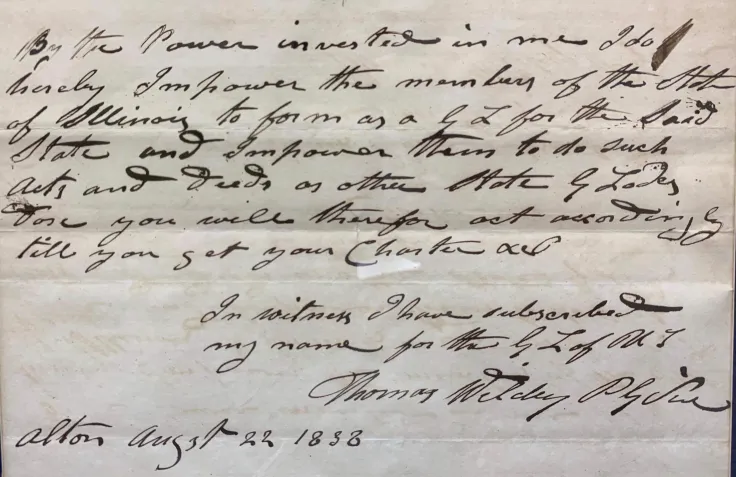 By the Power invested in me I do
hereby Impower the members of the State
of Illinois to form as a G L for the Said
State and Impower them to do such
Acts and Deeds as other State G Lodgs
Dose you will therefor act accordingly
till you get your Charter &c
In witness I have subscribed
my name for the G L of U S
Thomas Wildey P G Sire
Alton Augst 22 1838